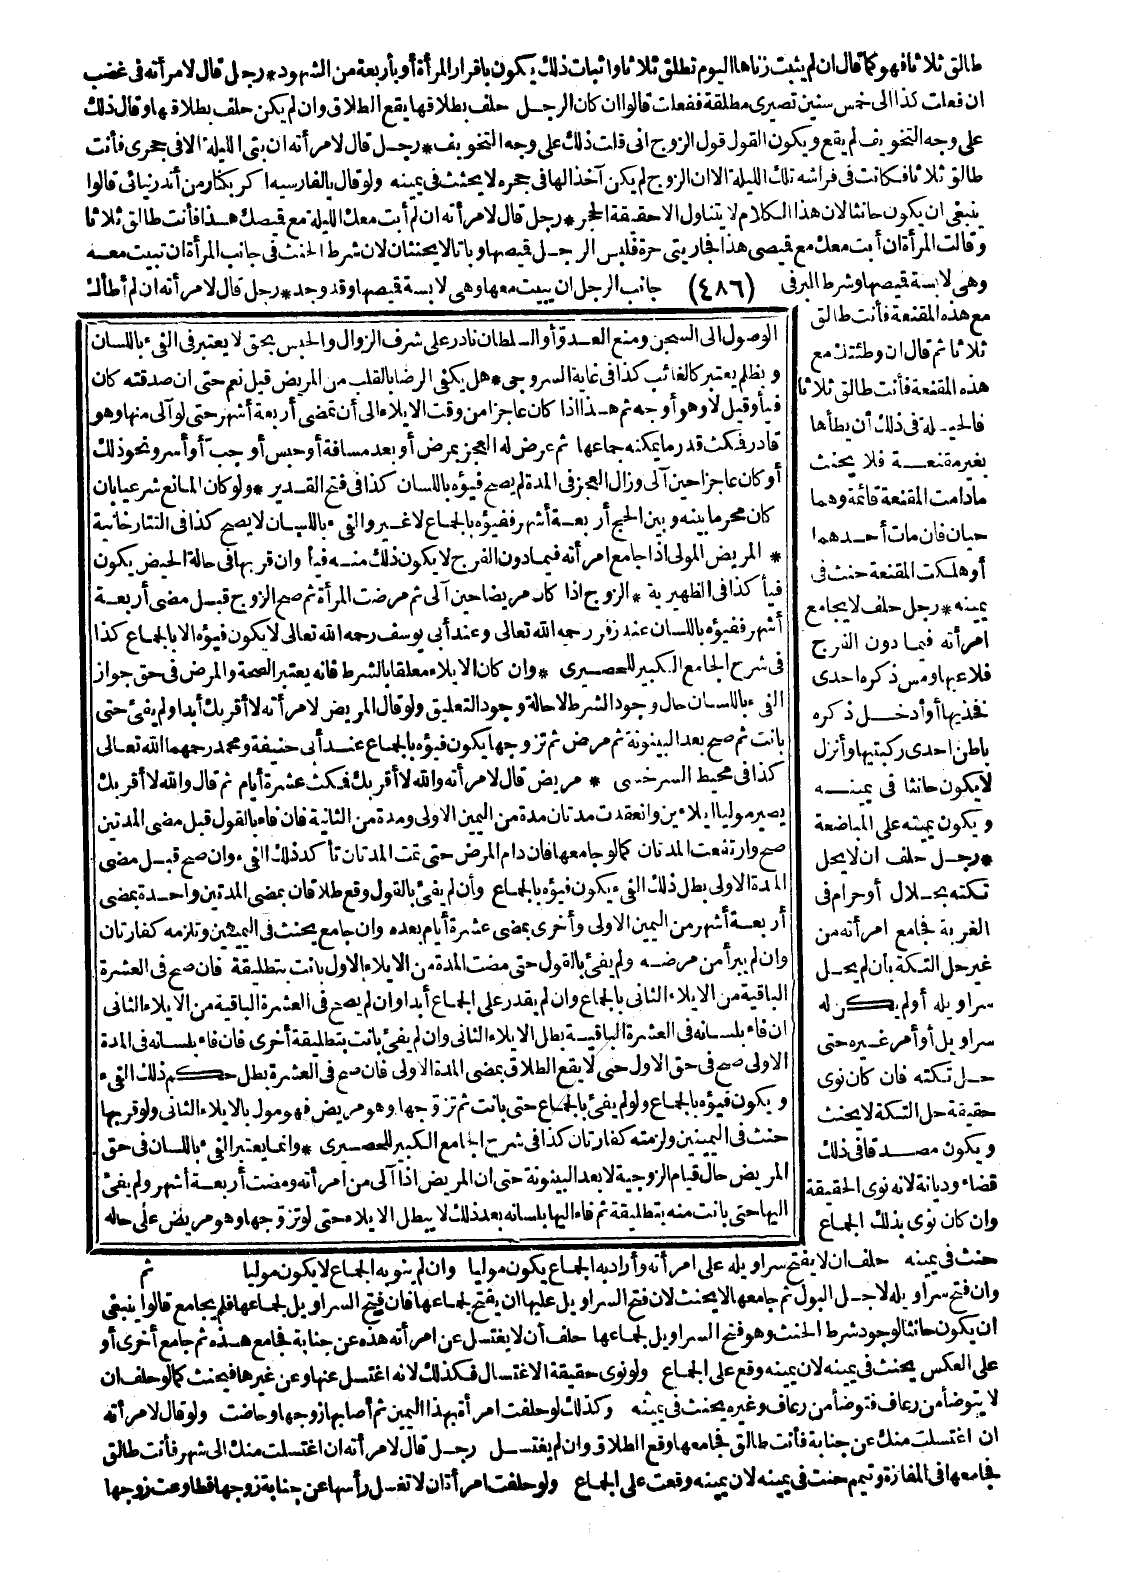 طالق ثلاثا فهو كما قال ان لم يثبت زناها اليوم تطلق ثلاثا واثبات ذلك يكون باقرار المرأة أو بأربعة من الشهود * رجل قال لامرأته فى غضب
ان فعلت كذا الى خمس سنين تصيرى مطلقة ففعلت قالوا ان كان الرجل حلف بطلاقها يقع الطلاق وان لم يكن حلف بطلاقها وقال ذلك
على وجه التخويف لم يقع ويكون القول قول الزوج انى قلت ذلك على وجه التخويف * رجل قال لامرأته ان بتى الليلة الا فى حجرى فأنت
طالق ثلاثا فكانت فى فراشه تلك الليلة الا ان الزوج لم يكن آخذا لها فى حجره لا يحنث فى يمينه ولو قال بالفارسيه اكر بكنار من اندر نيائى قالوا
ينبغى ان يكون حانثا لان هذا الكلام لا يتناول الا حقيقة الحجر * رجل قال لامرأته ان لم أبت معك الليلة مع قميصك هذا فأنت طالق ثلاثا
وقالت المرأة ان أبت معك مع قميصى هذا فجاريتى حرة فلبس الرجل قميصها وباتا لا يحنثان لان شرط الحنث فى جانب المرأة ان تبيت معه
وهى لابسة قميصها وشرط البر فى (٤٨٦) جانب الرجل ان يبيت معها وهى لابسة قميصها وقد وجد * رجل قال لامرأته ان لم أطأك
مع هذه المقنعة فأنت طالق
ثلاثا ثم قال ان وطئتك مع
هذه المقنعة فأنت طالق ثلاثا
فالحيلة فى ذلك أن يطأها
بغير مقنعة فلا يحنث
مادامت المقنعة قائمة وهما
حيان فان مات أحدهما
أو هلكت المقنعة حنث فى
يمينه * رجل حلف لا يجامع
امرأته فيما دون الفرج
فلاعبها ومس ذكره احدى
فخذيها أو أدخل ذكره
باطن احدى ركبتيها وأنزل
لا يكون حانثا فى يمينه
ويكون يمينه على المباضعة
* رجل حلف ان لا يحل
تكته بحلال أو حرام فى
الغربة فجامع امرأته من
غير حل التكة بأن لم يحل
سراويله أو لم يكن له
سراويل أو أمر غيره حتى
حل تكته فان كان نوى
حقيقة حل التكة لا يحنث
ويكون مصدقا فى ذلك
قضاء وديانة لانه نوى الحقيقة
وان كان نوى بذلك الجماع
الوصول الى السجن ومنع العدو أو السلطان نادر على شرف الزوال والحبس بحق لا يعتبر فى الفىء باللسان
وبظلم يعتبر كالغائب كذا فى غاية السروجى * هل يكفى الرضا بالقلب من المريض قيل نعم حتى ان صدقته كان
فيأ وقيل لا وهو أوجه ثم هذا اذا كان عاجزا من وقت الايلاء الى أن تمضى أربعة أشهر حتى لو آلى منها وهو
قادر فمكث قدر ما يمكنه جماعها ثم عرض له العجز بمرض أو بعد مسافة أو حبس أو جب أو أسر ونحو ذلك
أو كان عاجزا حين آلى وزال العجز فى المدة لم يصح فيؤه باللسان كذا فى فتح القدير * ولو كان المانع شرعيا بان
كان محرما بينه وبين الحج أربعة أشهر ففيؤه بالجماع لا غير والفىء باللسان لا يصح كذا فى التتارخانية
* المريض المولى اذا جامع امرأته فيما دون الفرج لا يكون ذلك منه فيأ وان قربها فى حالة الحيض يكون
فيأ كذا فى الظهيرية * الزوج اذا كان مريضا حين آلى ثم مرضت المرأة ثم صح الزوج قبل مضى أربعة
أشهر ففيؤه باللسان عند زفر رحمه الله تعالى وعند أبى يوسف رحمه الله تعالى لا يكون فيؤه الا بالجماع كذا
فى شرح الجامع الكبير للحصيرى * وان كان الايلاء معلقا بالشرط فانه يعتبر الصحة والمرض فى حق جواز
الفىء باللسان حال وجود الشرط لا حالة وجود التعليق ولو قال المريض لامرأته لا أقربك أبدا ولم يفئ حتى
بانت ثم صح بعد البينونة ثم مرض ثم تزوجها يكون فيؤه بالجماع عند أبى حنيفة ومحمد رحمهما الله تعالى
كذا فى محيط السرخسى * مريض قال لامرأته والله لا أقربك فمكث عشرة أيام ثم قال والله لا أقربك
يصير موليا ايلاءين وانعقدت مدتان مدة من اليمين الاولى ومدة من الثانية فان فاء بالقول قبل مضى المدتين
صح وارتفعت المدتان كما لو جامعها فان دام المرض حتى تمت المدتان تأكد ذلك الفىء وان صح قبل مضى
المدة الاولى بطل ذلك الفىء يكون فيؤه بالجماع وأن لم يفئ بالقول وقع طلاقان بمضى المدتين واحدة بمضى
أربعة أشهر من اليمين الاولى وأخرى بمضى عشرة أيام بعده وان جامع يحنث فى اليمينين وتلزمه كفارتان
وان لم يبرأ من مرضه ولم يفئ بالقول حتى مضت المدة من الايلاء الاول بانت بتطليقة فان صح فى العشرة
الباقية من الايلاء الثانى بالجماع وان لم يقدر على الجماع أبدا وان لم يصح فى العشرة الباقية من الايلاء الثانى
ان فاء بلسانه فى العشرة الباقية بطل الايلاء الثانى وان لم يفئ بانت بتطليقة أخرى فان فاء بلسانه فى المدة
الاولى صح فى حق الاول حتى لا يقع الطلاق بمضى المدة الاولى فان صح فى العشرة بطل حكم ذلك الفىء
ويكون فيؤه بالجماع ولو لم يفئ بالجماع حتى بانت ثم تزوجها وهو مريض فهو مول بالايلاء الثانى ولو قربها
حنث فى اليمينين ولزمته كفارتان كذا فى شرح الجامع الكبير للحصيرى * وانما يعتبر الفىء باللسان فى حق
المريض حال قيام الزوجية لا بعد البينونة حتى ان المريض اذا آلى من امرأته ومضت أربعة أشهر ولم يفئ
اليها حتى بانت منه بتطليقة ثم فاء اليها بلسانه بعد ذلك لا يبطل الايلاء حتى لو تزوجها وهو مريض على حاله
حنث فى يمينه حلف ان لا يفتح سراويله على امرأته وأراد به الجماع يكون موليا وان لم ينو به الجماع لا يكون موليا ثم
وان فتح سراويله لاجل البول ثم جامعها لا يحنث لان فتح السراويل عليها ان يفتح لجماعها فان فتح السراويل لجماعها فلم يجامع قالوا ينبغى
ان يكون حانثا لوجود شرط الحنث وهو فتح السراويل لجماعها حلف أن لا يغتسل عن امرأته هذه عن جنابة فجامع هذه ثم جامع أخرى أو
على العكس يحنث فى يمينه لان يمينه وقع على الجماع ولو نوى حقيقة الاغتسال فكذلك لانه اغتسل عنها وعن غيرها فيحنث كما لو حلف ان
لا يتوضأ من رعاف فتوضأ من رعاف وغيره يحنث فى يمينه وكذلك لو حلفت امرأة بهذا اليمين ثم أصابها زوجها وحاضت ولو قال لامرأته
ان اغتسلت منك عن جنابة فأنت طالق فجامعها وقع الطلاق وان لم يغتسل رجل قال لامرأته ان اغتسلت منك الى شهر فأنت طالق
فجامعها فى المفازة وتيمم حنث فى يمينه لان يمينه وقعت على الجماع ولو حلفت امرأة ان لا تغسل رأسها عن جنابة زوجها فطاوعت زوجها